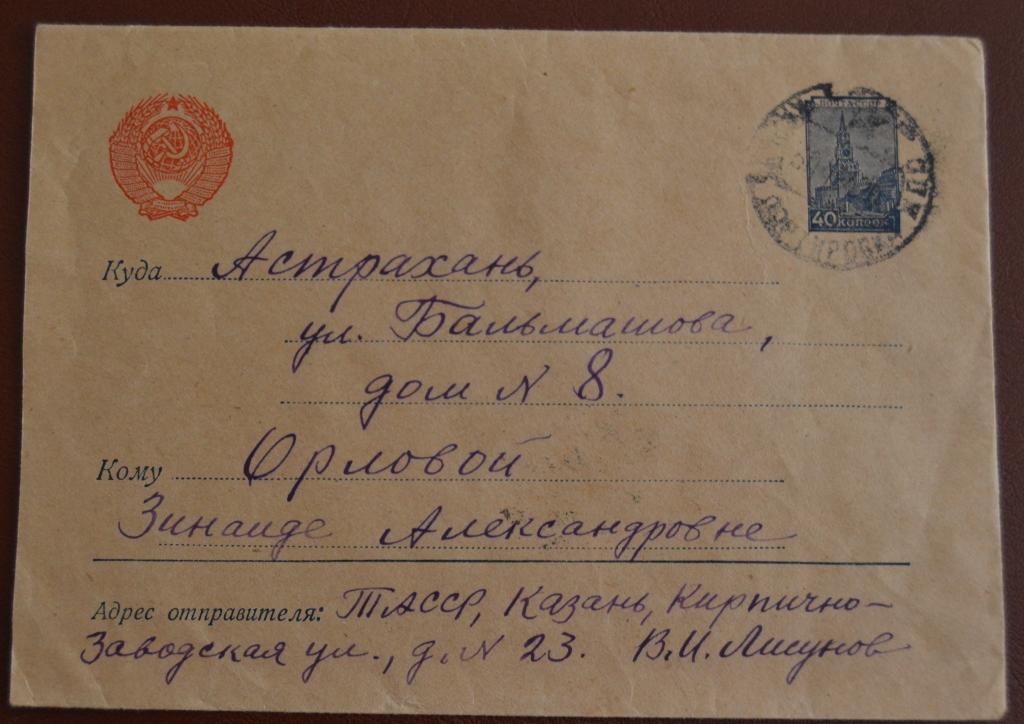 ПОЧТА СССР
40 КОПЕЕК
Куда Астрахань,
ул. Бальмашова,
дом N 8.
Кому Орловой
Зинаиде Александровне
Адрес отправителя: ТАССР, Казань, Кирпично-
Заводская ул., д. N 23. В.И. Лисунов